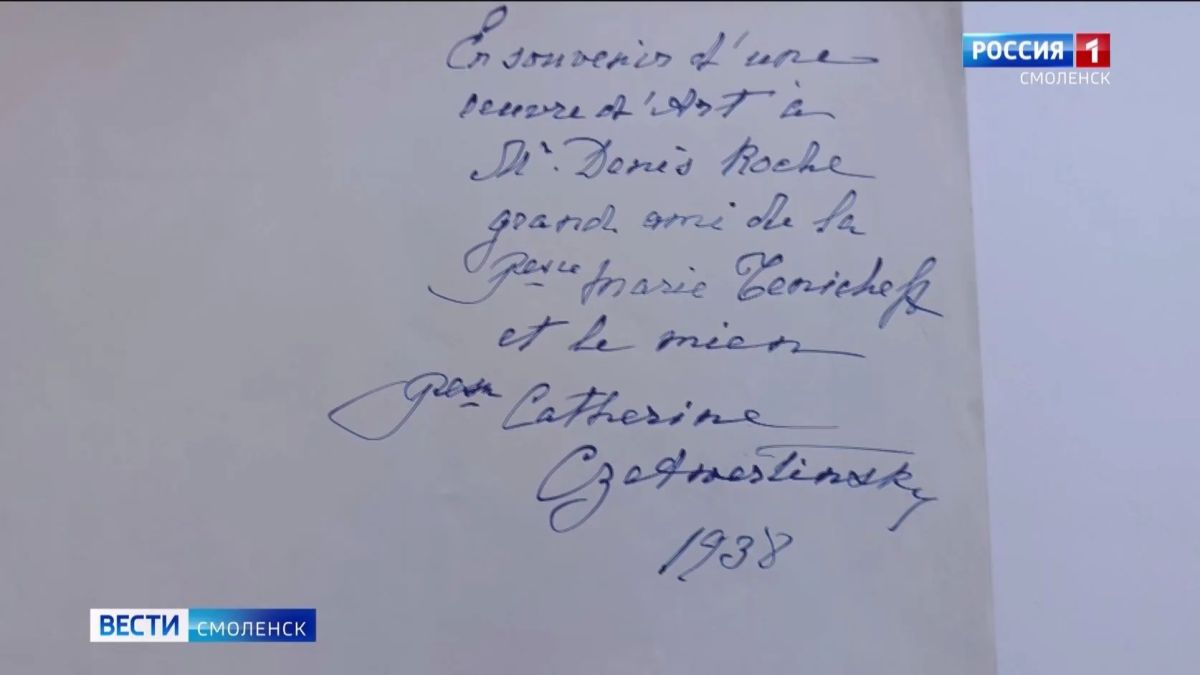 РОССИЯ 1
СМОЛЕНСК
En souvenir d'une
oeuvre d'Art à
Mr. Denis Roche
grand ami de la
Pcesse Marie Tenicheff
et le mien
Pcesse Catherine
Czetwertinsky
1938
ВЕСТИ СМОЛЕНСК